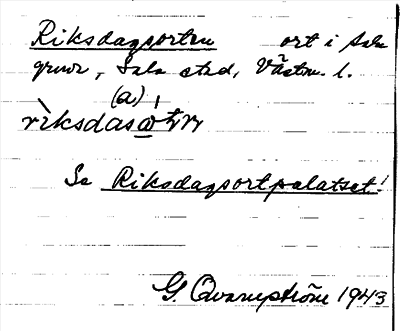 Riksdagsorten ort i Sala
gruva, Sala stad, Västm. l.
(a)
Se Riksdagsortpalatset!
G. Qvarnström 1943